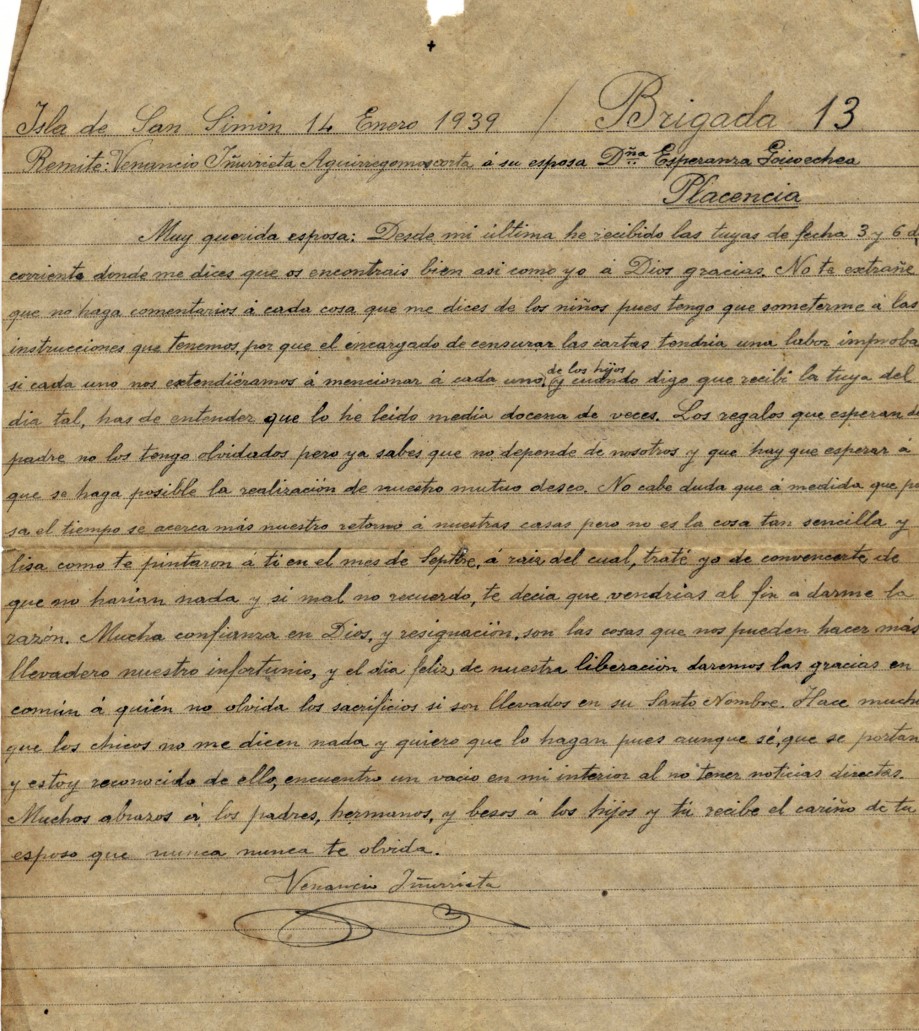 Isla de San Simón 14 Enero 1939 / Brigada 13
Remite: Venancio Iñurrieta Aguirregomoscorta á su esposa Dña Esperanza Goicoechea
Placencia
Muy querida esposa: Desde mi última he recibido las tuyas de fecha 3 y 6 d
corriente donde me dices que os encontrais bien asi como yo á Dios gracias. No te extrañe
que no haga comentarios á cada cosa que me dices de los niños pues tengo que someterme á las
instrucciones que tenemos, por que el encargado de censurar las cartas tendria una labor improba
si cada uno nos extendiéramos á mencionar á cada uno de los hijos y cuando digo que recibi la tuya del
dia tal, has de entender que lo he leido media docena de veces. Los regalos que esperan de
padre no los tengo olvidados pero ya sabes que no depende de nosotros y que hay que esperar á
que se haga posible la realización de nuestro mutuo deseo. No cabe duda que á medida que pa
sa el tiempo se acerca más nuestro retorno á nuestras casas pero no es la cosa tan sencilla y
lisa como te pintaron á ti en el mes de Septbre, á raiz del cual, traté yo de convencerte de
que no harian nada y si mal no recuerdo, te decia que vendrias al fin a darme la
razón. Mucha confianza en Dios, y resignación, son las cosas que nos pueden hacer más
llevadero nuestro infortunio, y el dia feliz, de nuestra liberación daremos las gracias en
común á quién no olvida los sacrificios si son llevados en su Santo Nombre. Hace mucho
que los chicos no me dicen nada y quiero que lo hagan pues aunque sé, que se portan
y estoy reconocido de ello, encuentro un vacio en mi interior al no tener noticias directas.
Muchos abrazos á los padres, hermanos, y besos á los hijos y tú recibe el cariño de tu
esposo que nunca nunca te olvida.
Venancio Iñurrieta